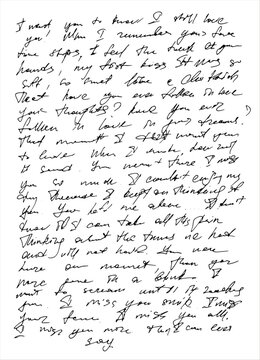 I want you to know I still love
you! When I remember your face
time stops, I feel the touch of your
hands, my first kiss It was so
soft
That have you ever fallen in love
your thoughts? have you ever
fallen in love in your dreams?
That moment I didn't want you
to leave. When I awoke, dew out
I saw. You weren't there I miss
you so much I couldn't enjoy my
day because I kept on thinking of
you You left me alone I don't
know if I can take all this pain
Thinking about the times we had
and will not have You were
here one moment Then you
were gone in a blink I
want to scream until it reaching
you. I miss you smile I miss
your face I miss you all.
I miss you more than I can ever
say